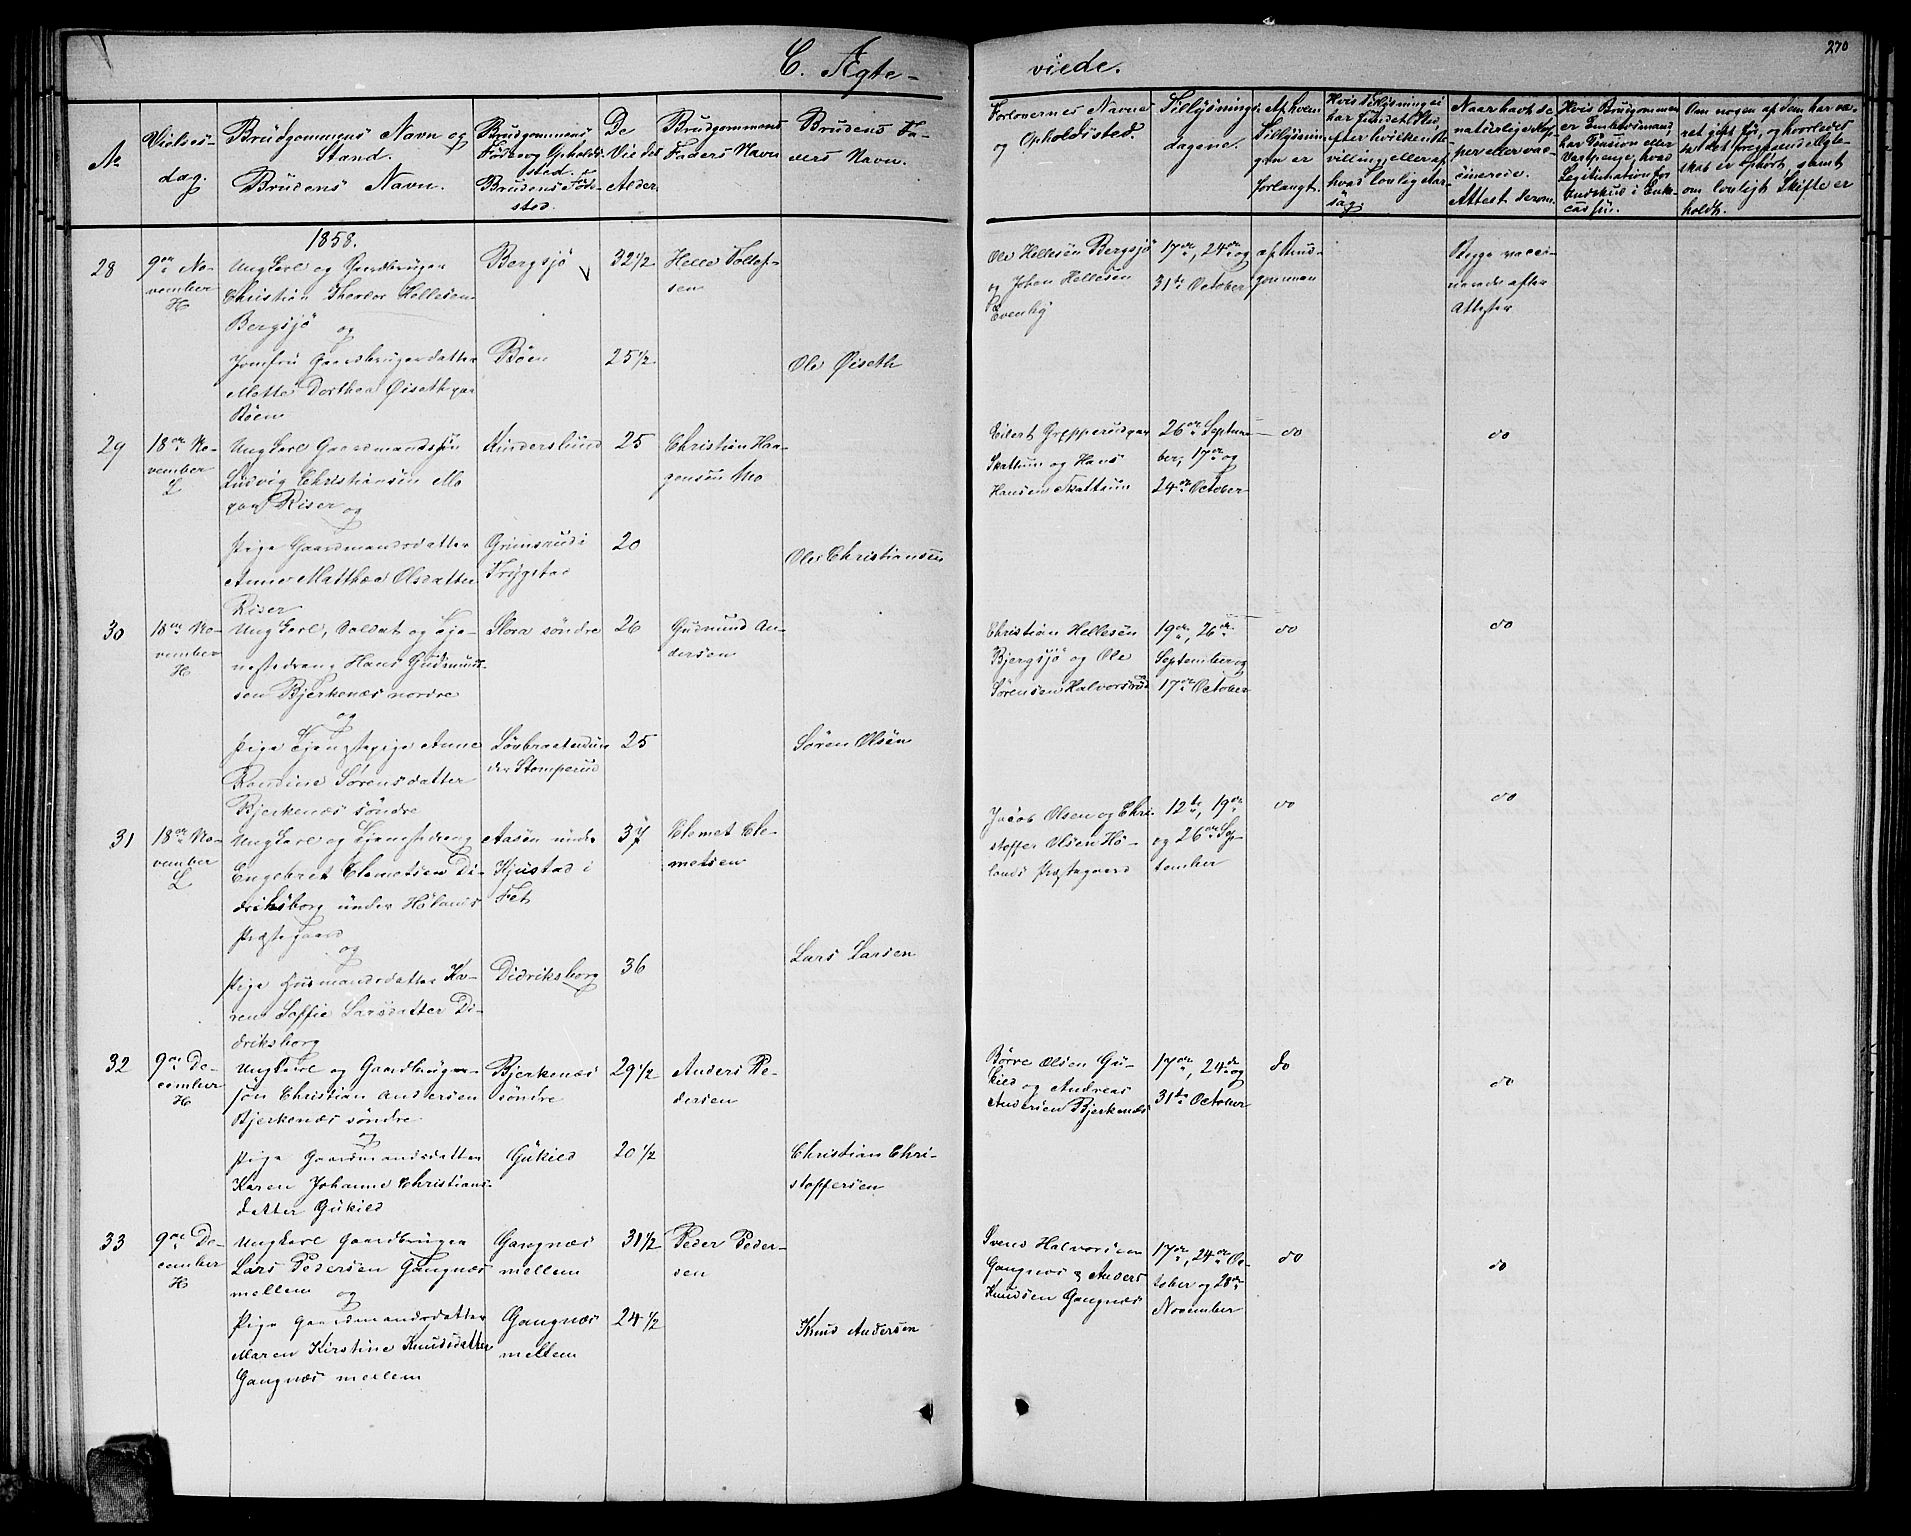 270
C. Ægte-
viede.
No
Vielses-
dag.
Brudgommens Navn og
Stand.
Brudens Navn.
Brudgommens
Føde og Opholds-
sted.
Brudens Føde-
sted.
De
Viedes
Alder
Brudgommens
Faders Navn
Brudens Fa-
ders Navn.
Forlovernes Navne
og Opholdssted.
Tillysnings-
dagene.
Af hvem
Tillysnin-
gen er
forlangt.
Hvis Tillysning ei
har fundet Sted,
efter hvilken Be-
villing, eller af
hvad lovlig Aar-
sag.
Naar havt de
naturlige Kop-
per eller vac-
cinerede.
Attest derom.
Hvis Brudgommen
er Enkemand,
har Pension eller
Vartpenge, hvad
Legitimation for
Indskud i Enke-
cassen.
Om nogen af dem har væ-
ret gift før, og hvorledes
det foregaaende Ægte-
skab er ophørt, samt
om lovligt Skifte er
holdt.
1858.
28
9de No-
vember
H
Ungkarl og Gaardbruger
Christian Thorvor Hellesen
Bergsjö
og
Jomfru Gaardbrugerdatter
Mette Dorthea Øiseth paa
Böen
Bergsjö
Böen
32 1/2
25 1/2
Helle Tollef-
sen
Ole Øiseth
Ole Hellesen Bergsjö
og Johan Hellesen
Evenby
17de, 24de og
31te October
af Brud-
gommen
Begge vacci-
nerede efter
Attester
29
18de No-
vember
L
Ungkarl Gaardmandssøn
Ludvig Christiansen Mo
paa Riser og
Pige Gaardmandsdatter
Anne Mathea Olsdatter
Riser
Kinderslund
Grimsrud i
Trygstad
25
20
Christian Haa-
gensen Mo
Ole Christiansen
Eilert Grepperud paa
Skattum og Hans
Hansen Skattum
26de Septem-
ber, 17de og
24de October
do
do
30
18de No-
vember
H
Ungkarl, Soldat og Tje-
nestedreng Hans Gudmund-
sen Bjerkenæs nordre
og
Pige Tjenestepige Anne
Randine Sørensdatter
Bjerkenæs söndre
Slora söndre
Lövbraaten un-
der Stomperud
26
25
Gudmund An-
dersen
Sören Olsen
Christian Hellesen
Bjergsjö og Ole
Sörensen Halvorsrud
19de, 26de
September og
17de October
do
do
31
18de No-
vember
L
Ungkarl og Tjenestedreng
Engebret Clemetsen Di-
driksborg under Hölands
Præstegaard
og
Pige Husmandsdatter Ka-
ren Soffie Larsdatter Di-
driksborg
Aasen under
Kjustad i
Fet
Didriksborg
37
36
Clemet Cle-
metsen
Lars Larsen
Jacob Olsen og Chri-
stoffer Olsen Hö-
lands Præstegaard
12te, 19de
og 26de Sep-
tember
do
do
32
9de De-
cember
H
Ungkarl og Gaardbruger-
søn Christian Andersen
Bjerkenæs söndre
og
Pige Gaardmandsdatter
Karen Johanne Christians-
datter Gukild
Bjerkenæs
söndre
Gukild
29 1/2
20 1/2
Anders Pe-
dersen
Christian Chri-
stoffersen
Börre Olsen Gu-
kild og Andreas
Andersen Bjerkenæs
17de, 24de og
31te October
do
do
33
9de De-
cember
H
Ungkarl Gaardbruger
Lars Pedersen Gangnæs
mellem og
Pige Gaardmandsdatter
Maren Kirstine Knudsdatter
Gangnæs mellem
Gangnæs
mellem
Gangnæs
mellem
31 1/2
24 1/2
Peder Peder-
sen
Knud Andersen
Svend Halvorsen
Gangnæs og Anders
Knudsen Gangnæs
17de, 24de Oc-
tober og 28de
November
do
do